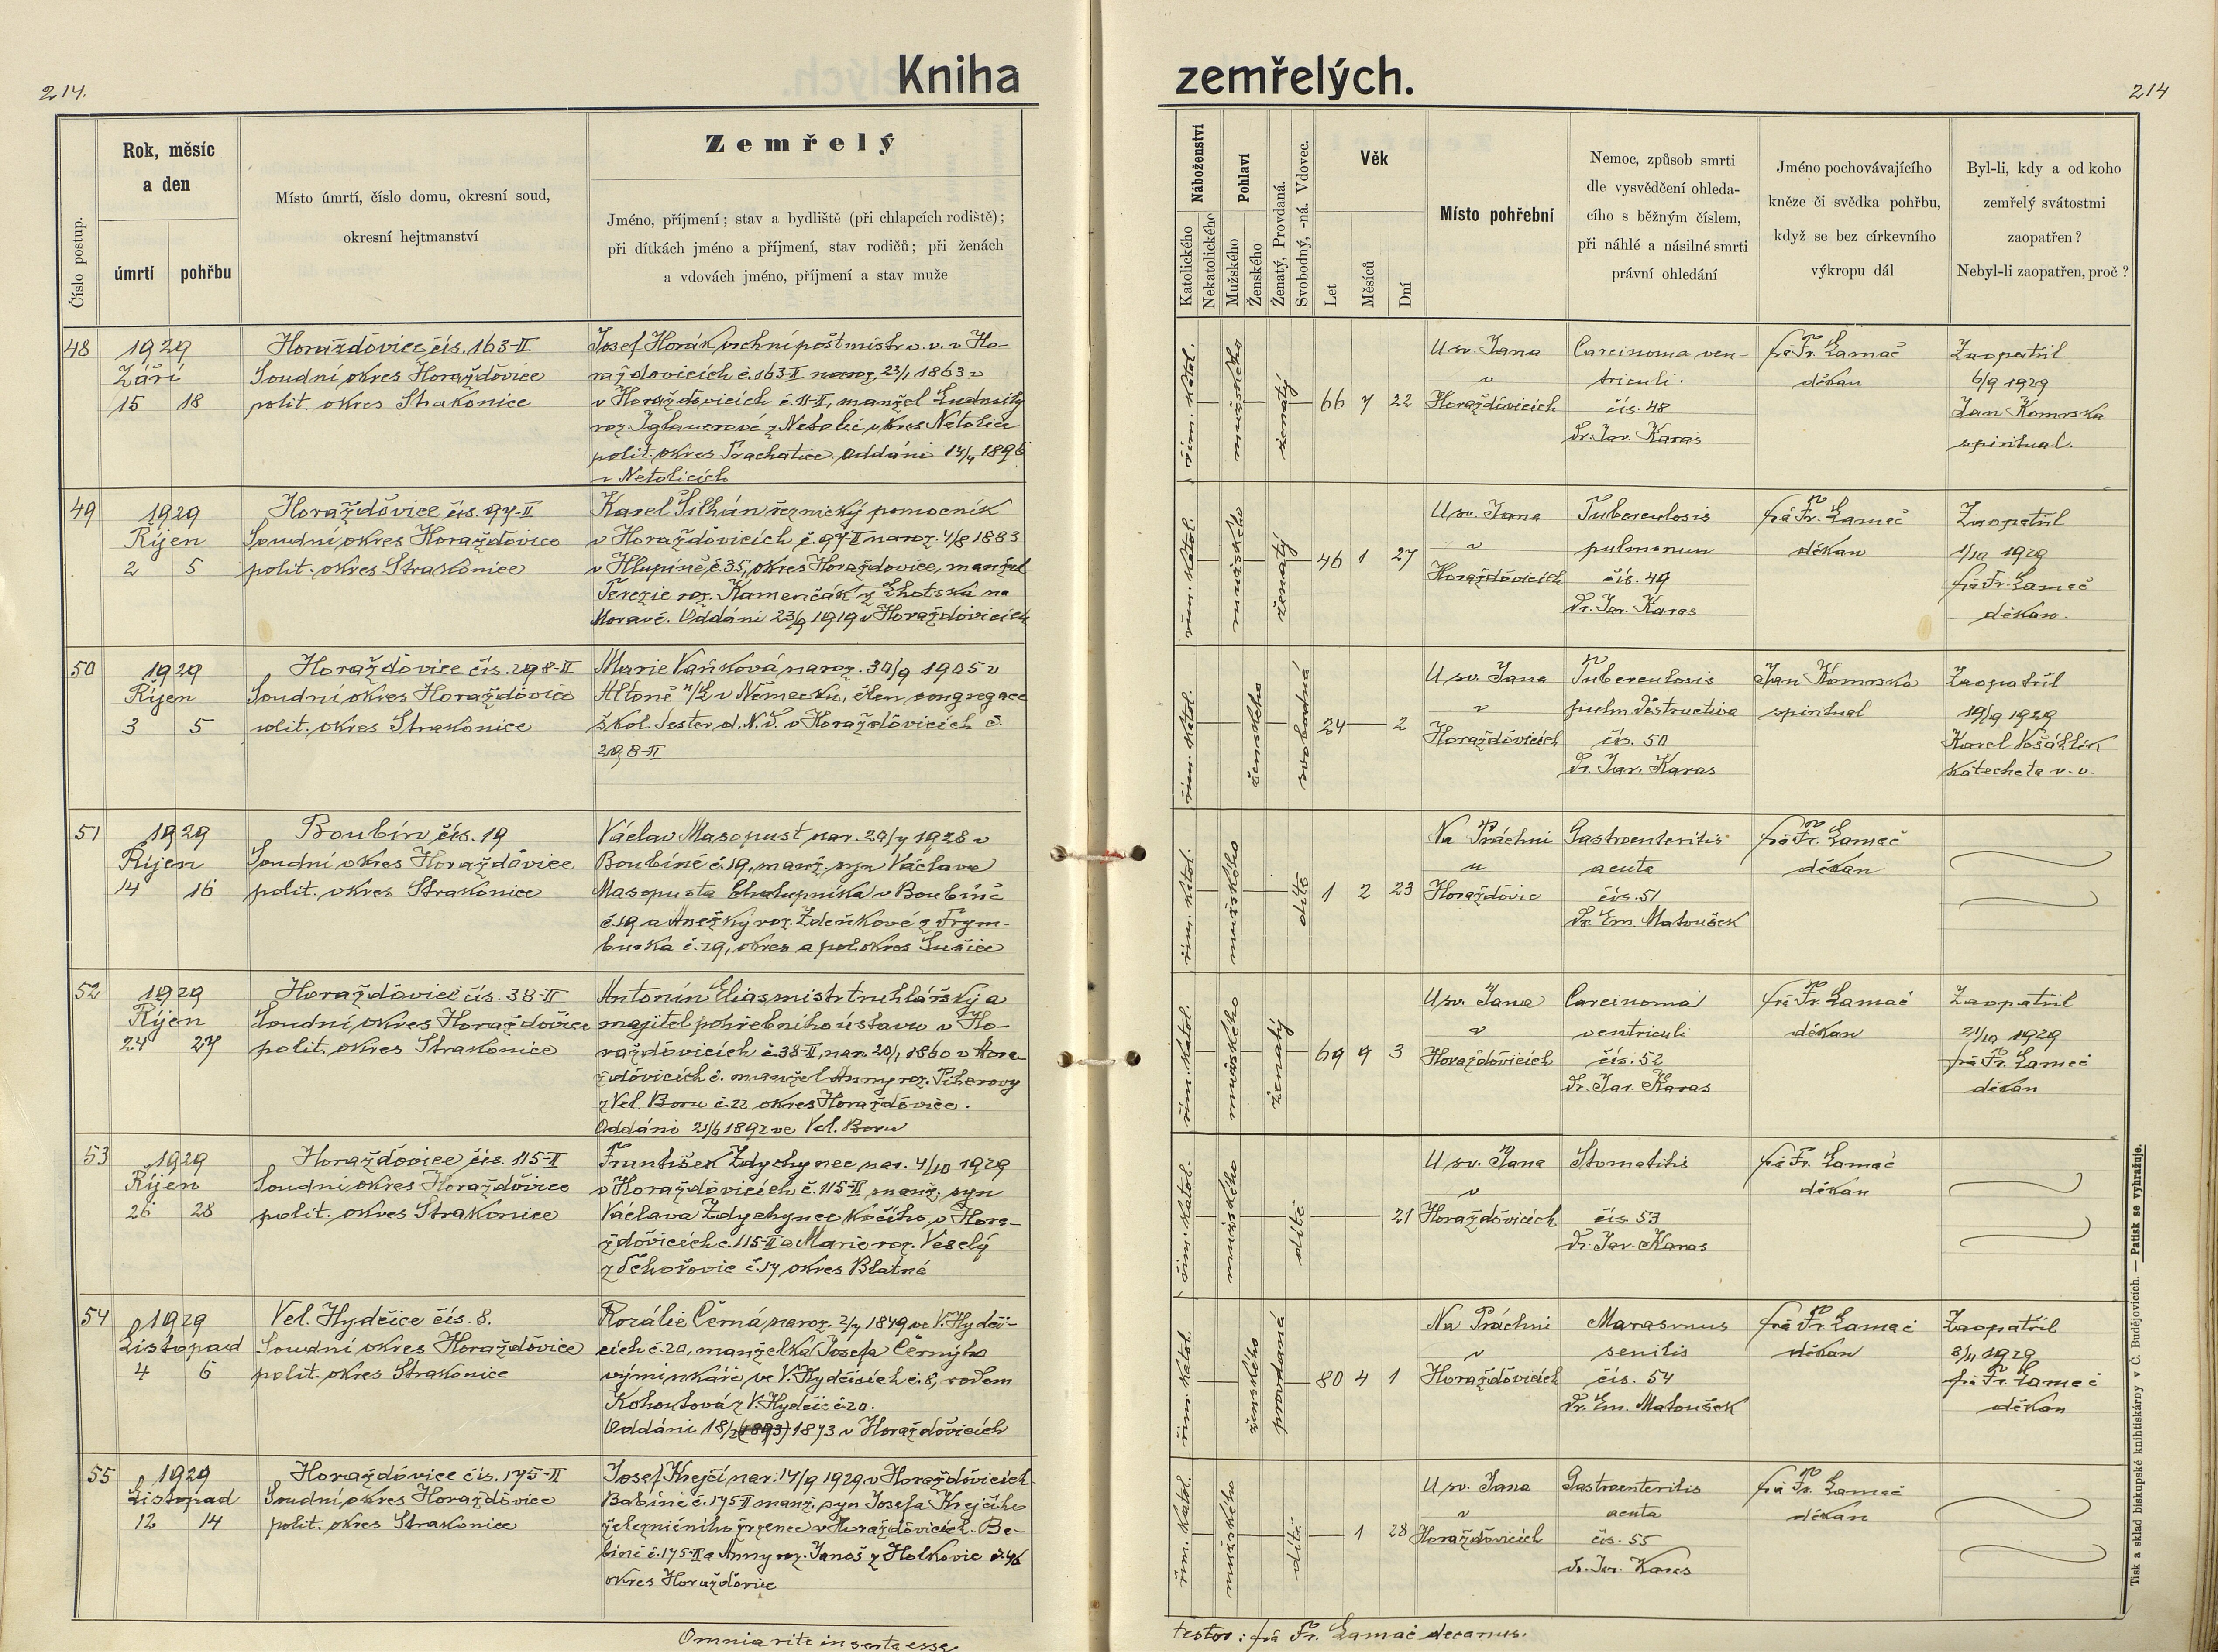 214.
Kniha
zemřelých.
214
Číslo postup.
Rok, měsíc
a den
úmrtí
pohřbu
Místo úmrtí, číslo domu, okresní soud,
okresní hejtmanství
Zemřelý
Jméno, příjmení; stav a bydliště (při chlapcích rodiště);
při dítkách jméno a příjmení, stav rodičů; při ženách
a vdovách jméno, příjmení a stav muže
Náboženství
Katolického
Nekatolického
Pohlaví
Mužského
Ženského
Ženatý, Provdaná.
Svobodný, -ná. Vdovec.
Věk
Let
Měsíců
Dní
Místo pohřební
Nemoc, způsob smrti
dle vysvědčení ohleda-
cího s běžným číslem,
při náhlé a násilné smrti
právní ohledání
Jméno pochovávajícího
kněze či svědka pohřbu,
když se bez církevního
výkropu dál
Byl-li, kdy a od koho
zemřelý svátostmi
zaopatřen?
Nebyl-li zaopatřen, proč?
48
1929
Září
15 18
Horažďovice čís. 163-II
Soudní okres Horažďovice
polit. okres Strakonice
Josef Horák vrchní poštmistr v. v. v Ho-
ražďovicích č. 163-II naroz. 23/1 1863 v
v Horažďovicích č. 11-II, manžel Ludmily
roz. Iglauerové z Netolic okres Netolice
polit. okres Prachatice. Oddáni 14/4 1896
v Netolicích
řím. katol.
mužského
ženatý
66 7 22
U sv. Jana
v
Horažďovicích
Carcinoma ven-
triculi.
čís. 48
Dr. Jar. Karas
frá Fr. Lamač
děkan
Zaopatřil
6/9 1929
Jan Komrska
spirituál.
49
1929
Říjen
2 5
Horažďovice čís. 97-II
Soudní okres Horažďovice
polit. okres Strakonice
Karel Šilhán řeznický pomocník
v Horažďovicích č. 97-II naroz. 4/8 1883
v Hlupíně č. 35, okres Horažďovice, manžel
Terezie roz. Kamenčák z Lhotska na
Moravě. Oddáni 23/9 1919 v Horažďovicích
řím. katol.
mužského
ženatý
46 1 27
U sv. Jana
v
Horažďovicích
Tuberculosis
pulmonum
čís. 49
Dr. Jar. Karas
frá Fr. Lamač
děkan
Zaopatřil
1/10 1929
frá Fr. Lamač
děkan.
50
1929
Říjen
3 5
Horažďovice čís. 298-II
Soudní okres Horažďovice
polit. okres Strakonice
Marie Vaňková naroz. 30/9 1905 v
Altoně n/L v Německu, člen congregace
škol. Sester d. N. D. v Horažďovicích č.
298-II
řím. katol.
ženského
svobodná
24 2
U sv. Jana
v
Horažďovicích
Tuberculosis
pulm. destructiva
čís. 50
Dr. Jar. Karas
Jan Komrska
spirituál
Zaopatřil
19/9 1929
Karel Vošáhlík
katecheta v. v.
51
1929
Říjen
14 16
Boubín čís. 19
Soudní okres Horažďovice
polit. okres Strakonice
Václav Masopust nar. 20/7 1928 v
Boubíně č. 19, manž. syn Václava
Masopusta chalupníka v Boubíně
č. 19 a Anežky roz. Zdeňkové z Frym-
burka č. 29, okres a pol. okres Sušice
řím. katol.
mužského
dítě
1 2 23
Na Práchni
u
Horažďovic
Gastroenteritis
acuta
čís. 51
Dr. Em. Matoušek
frá Fr. Lamač
děkan
52
1929
Říjen
24 27
Horažďovice čís. 38-II
Soudní okres Horažďovice
polit. okres Strakonice
Antonín Elias mistr truhlářský a
majitel pohřebního ústavu v Ho-
ražďovicích č. 38-II, nar. 20/1 1860 v Hora-
žďovicích č. manžel Anny roz. Piherovy
z Vel. Boru č. 22 okres Horažďovice.
Oddáni 21/6 1892 ve Vel. Boru
řím. katol.
mužského
ženatý
69 9 3
U sv. Jana
v
Horažďovicích
Carcinoma
ventriculi
čís. 52
Dr. Jar. Karas
frá Fr. Lamač
děkan
Zaopatřil
21/10 1929
frá Fr. Lamač
děkan
53
1929
Říjen
26 28
Horažďovice čís. 115-II
Soudní okres Horažďovice
polit. okres Strakonice
František Zdychynec nar. 4/10 1929
v Horažďovicích č. 115-II manž. syn
Václava Zdychynec kočího v Hora-
žďovicích č. 115-II a Marie roz. Veselý
z Tchořovic č. 17 okres Blatná
řím. katol.
mužského
dítě
21
U sv. Jana
v
Horažďovicích
Stomatitis
čís. 53
Dr. Jar. Karas
frá Fr. Lamač
děkan
54
1929
Listopad
4 6
Vel. Hydčice čís. 8.
Soudní okres Horažďovice
polit. okres Strakonice
Rozálie Černá naroz. 2/7 1849 ve V. Hydči-
cích č. 20, manželka Josefa Černýho
výminkáře ve V. Hydčicích č. 8, rodem
Kohoutová z V. Hydčic č. 20.
Oddáni 18/2 (1893) 1873 v Horažďovicích
řím. katol.
ženského
provdaná
80 4 1
Na Práchni
v
Horažďovicích
Marasmus
senilis
čís. 54
Dr. Em. Matoušek
frá Fr. Lamač
děkan
Zaopatřil
3/11 1929
frá Fr. Lamač
děkan
55
1929
Listopad
12 14
Horažďovice čís. 175-II
Soudní okres Horažďovice
polit. okres Strakonice
Josef Krejčí nar. 14/9 1929 v Horažďovicích-
Babíně č. 175-II manž. syn Josefa Krejčího
železničního zřízence v Horažďovicích-Ba-
bíně č. 175-II a Anny roz. Janoš z Holkovic č. 46
okres Horažďovice
řím. katol.
mužského
dítě
1 28
U sv. Jana
v
Horažďovicích
Gastroenteritis
acuta
čís. 55
Dr. Jar. Karas
frá Fr. Lamač
děkan
Omnia rite inserta esse
testor: frá Fr. Lamač decanus.
Tisk a sklad biskupské knihtiskárny v Č. Budějovicích. — Patisk se vyhražuje.